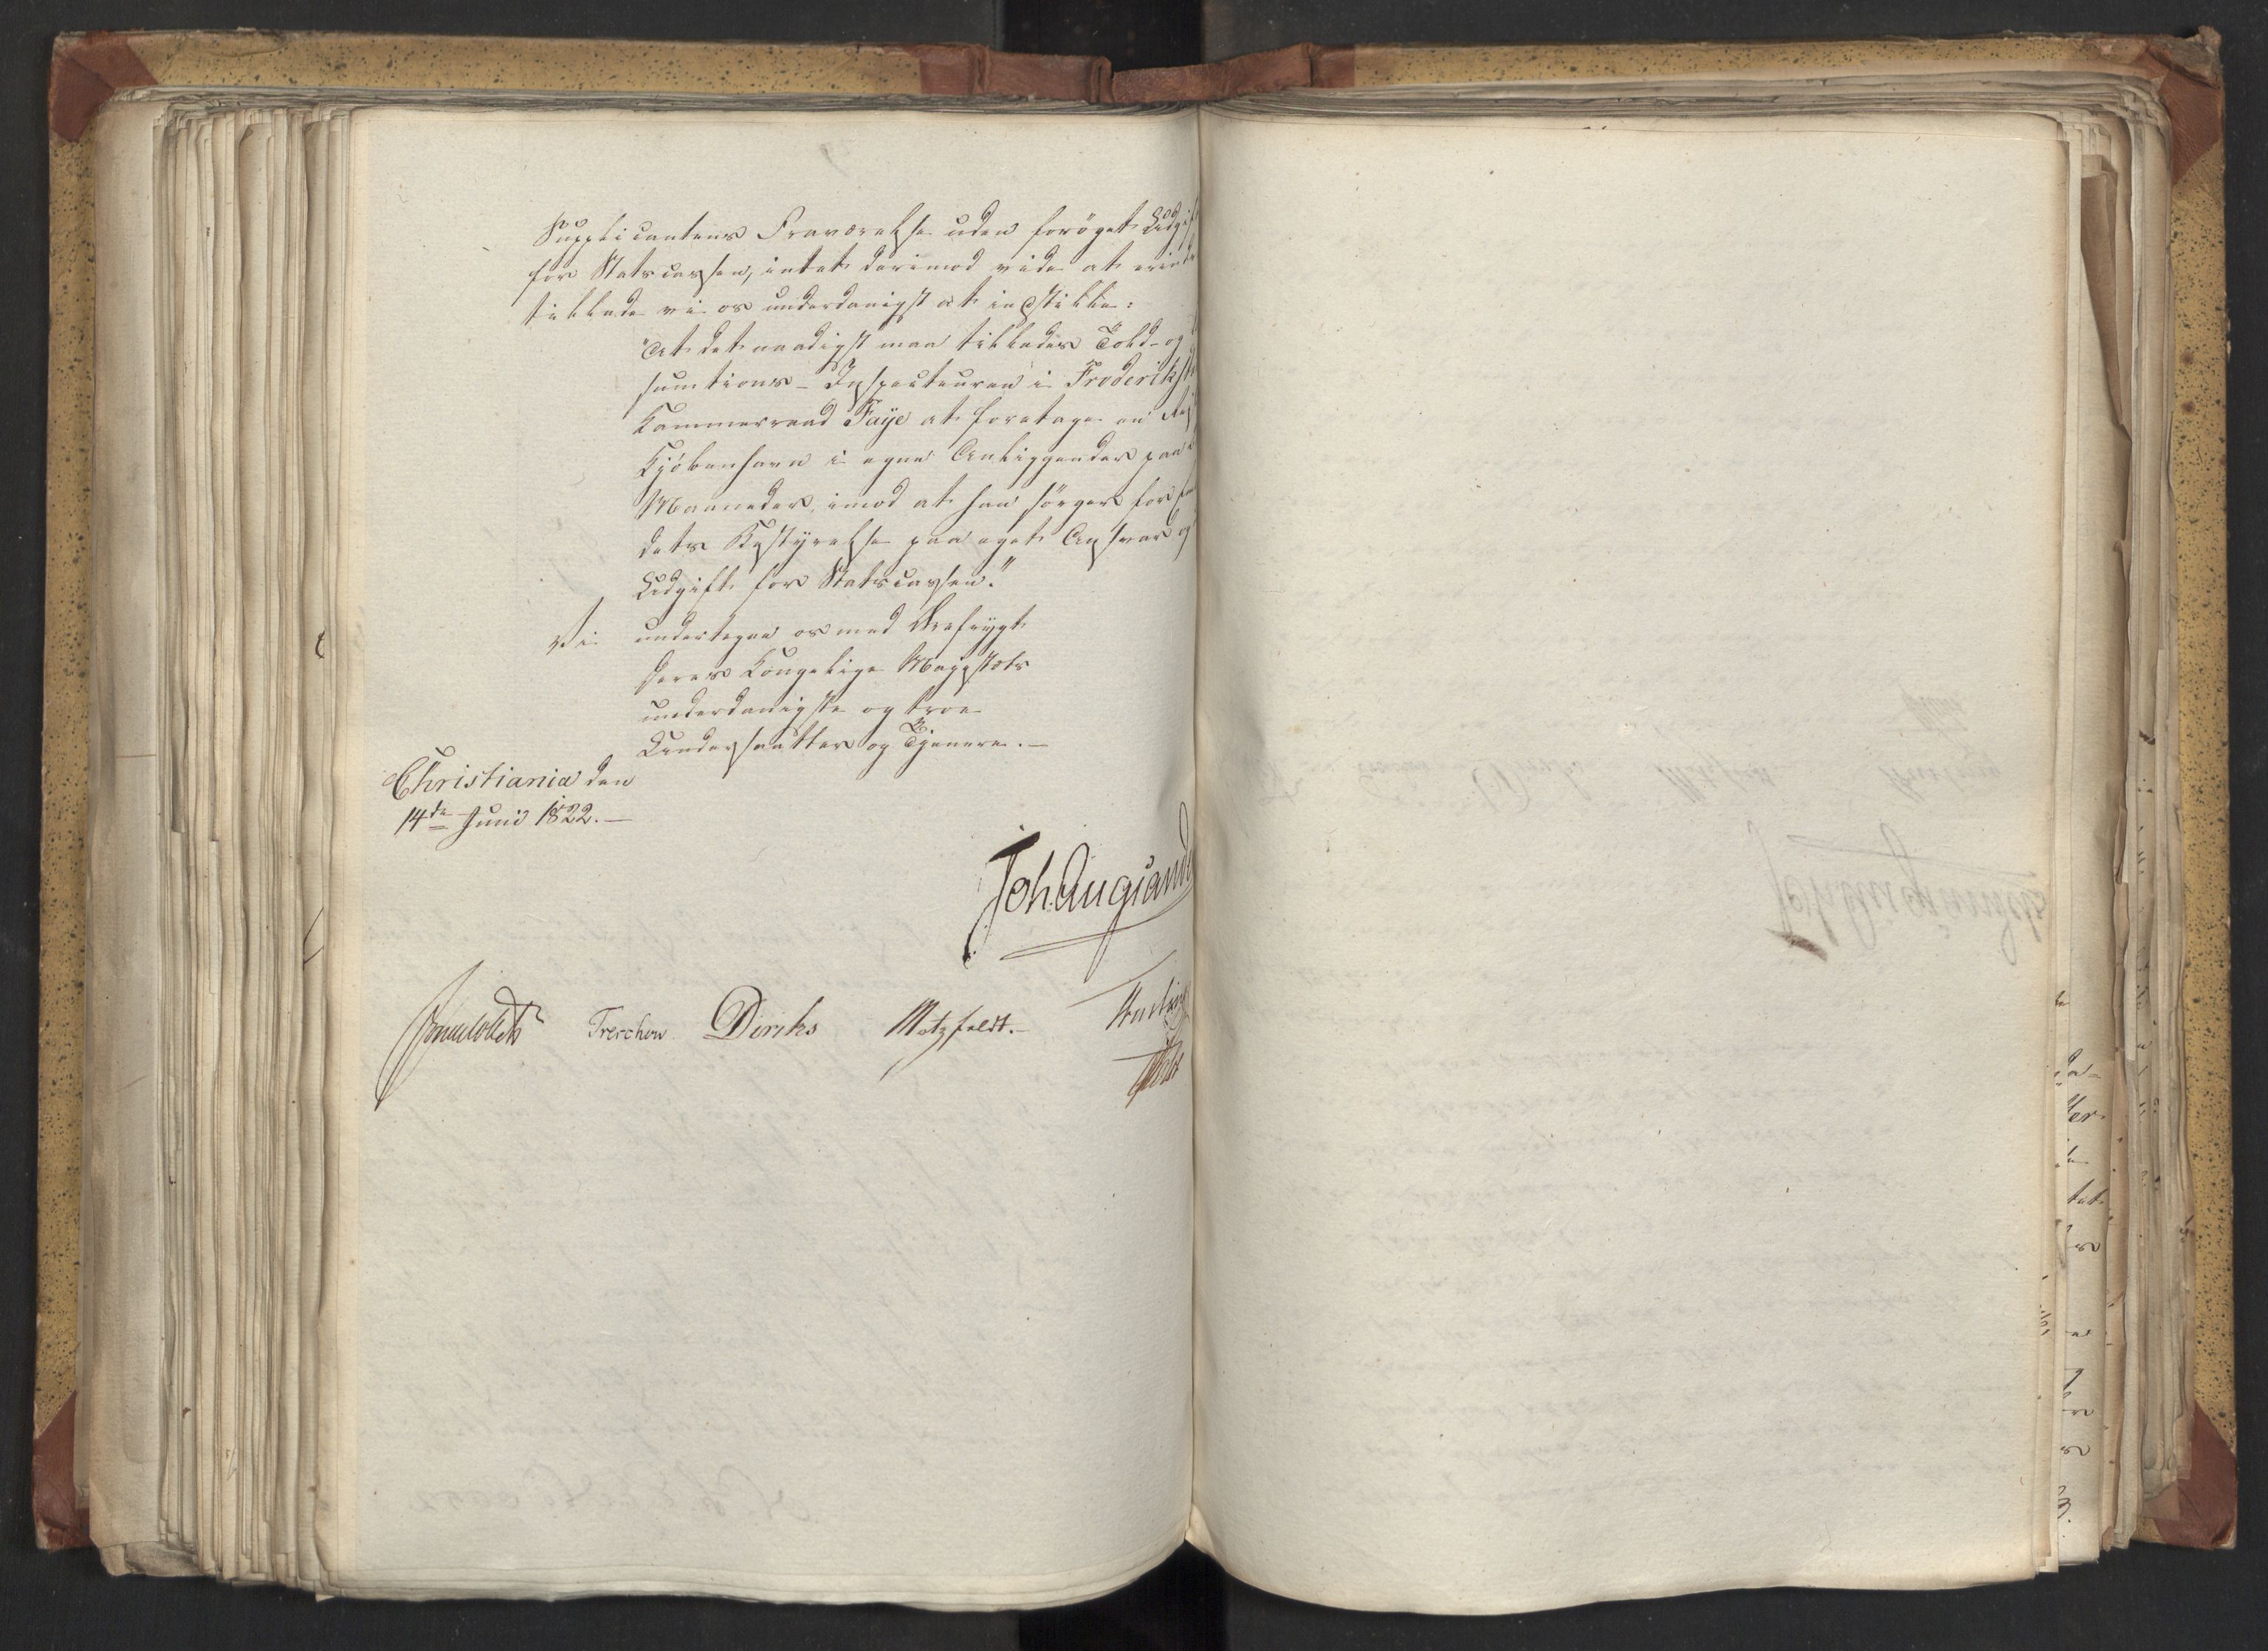 Supplicantens Fraværelse uden forøget Udgif
for Statscassen, intet derimod vide at erind
tillade vi os underdanigst at indstille:
"At det naadigst maa tillades Told- og
sumtions-Inspecteuren i Frederikst
Kammerraad Faye at foretage en Rej
Kjøbenhavn i egne Anliggender paa
Maaneder, imod at han sørger for
dets Bestyrelse paa eget Ansvar og
Udgift for Statscassen."
Vi undertegne os med Ærefrygt
Deres Kongelige Majestæts
underdanigste og troe
Undersaatter og Tjenere.—
Christiania den
14de Juni 1822.—
Joh. Aug. Sande
Sommerhielm Treschow Diriks Motzfeldt.—
Holst